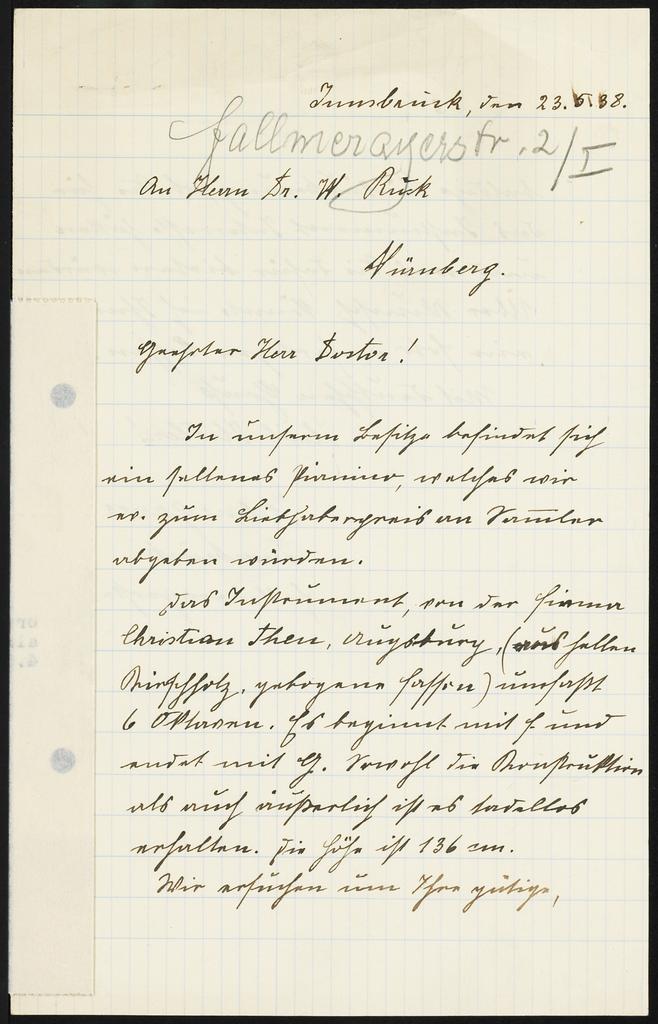 Innsbruck, den 23.5.38.
Fallmerayerstr. 2/I
An Herrn Dr. W. Rück
Nürnberg.
Geehrter Herr Doktor!
In unserm Besitze befindet sich
ein seltenes Pianino, welches wir
ev. zum Liebhaberpreis an Sam̄ler
abgeben würden.
Das Instrument, von der Firma
Christian Then, Augsburg, (aus hellen
Kirschholz, gebogene Fasson) umfaßt
6 Oktaven. Es beginnt mit F und
endet mit G. Sowohl die Konstruktion
als auch äußerlich ist es tadellos
erhalten. Die Höhe ist 136 cm.
Wir ersuchen um Ihre gütige,